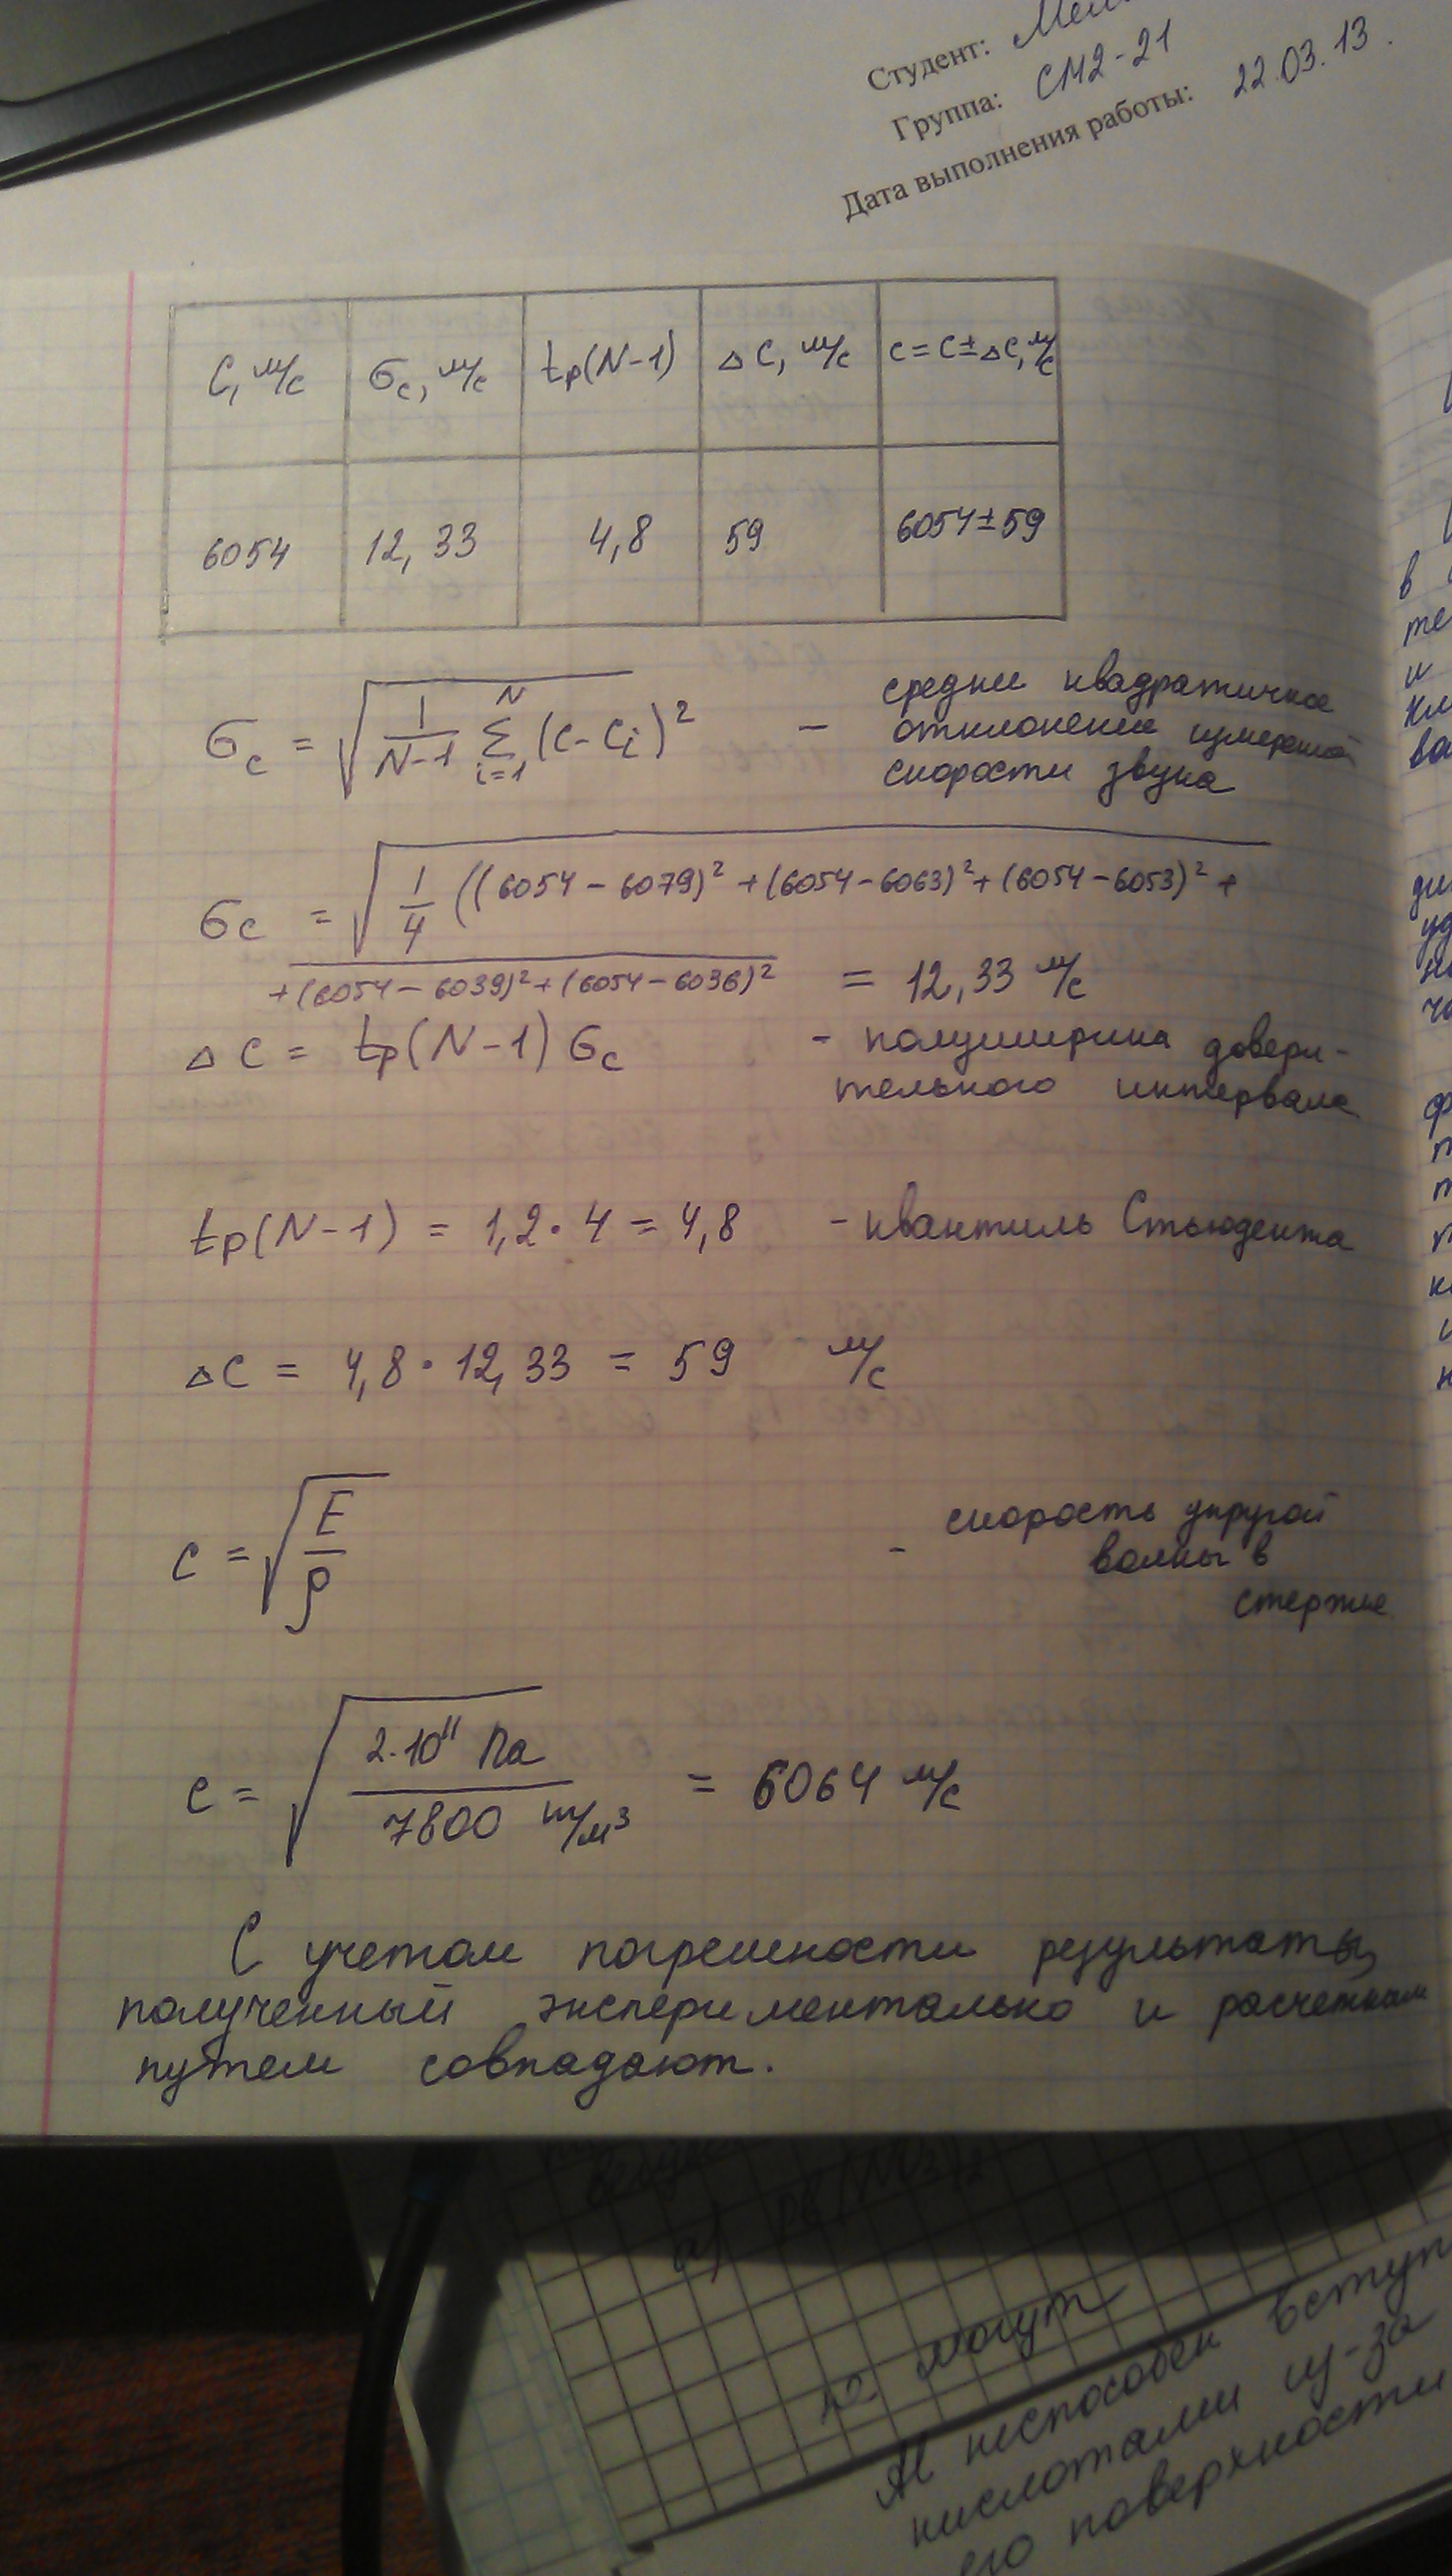 Студент:
Группа: СМ2-21
Дата выполнения работы: 22.03.13.
C, м/с | σc, м/с | tp(N-1) | ΔC, м/с | c = C ± ΔC, м/с
6054 | 12,33 | 4,8 | 59 | 6054±59
σc = √(1/(N-1) Σ(i=1, N) (C - Ci)²) - средни квадратичное
отклонение измеренной
скорости звука
σc = √(1/4 ((6054 - 6079)² + (6054 - 6063)² + (6054 - 6053)² +
+ (6054 - 6039)² + (6054 - 6036)² = 12,33 м/с
ΔC = tp(N-1) σc - полуширина довери-
тельного интервала
tp(N-1) = 1,2 · 4 = 4,8 - квантиль Стьюдента
ΔC = 4,8 · 12,33 = 59 м/с
c = √(E/ρ) - скорость упругой
волны в
стержне
c = √(2·10¹¹ Па / 7800 кг/м³) = 6064 м/с
С учетом погрешности результаты,
полученный экспериментально и расчетным
путем совпадают.
а)
могут
Al неспособен вступ
кислотами из-за
его поверхности